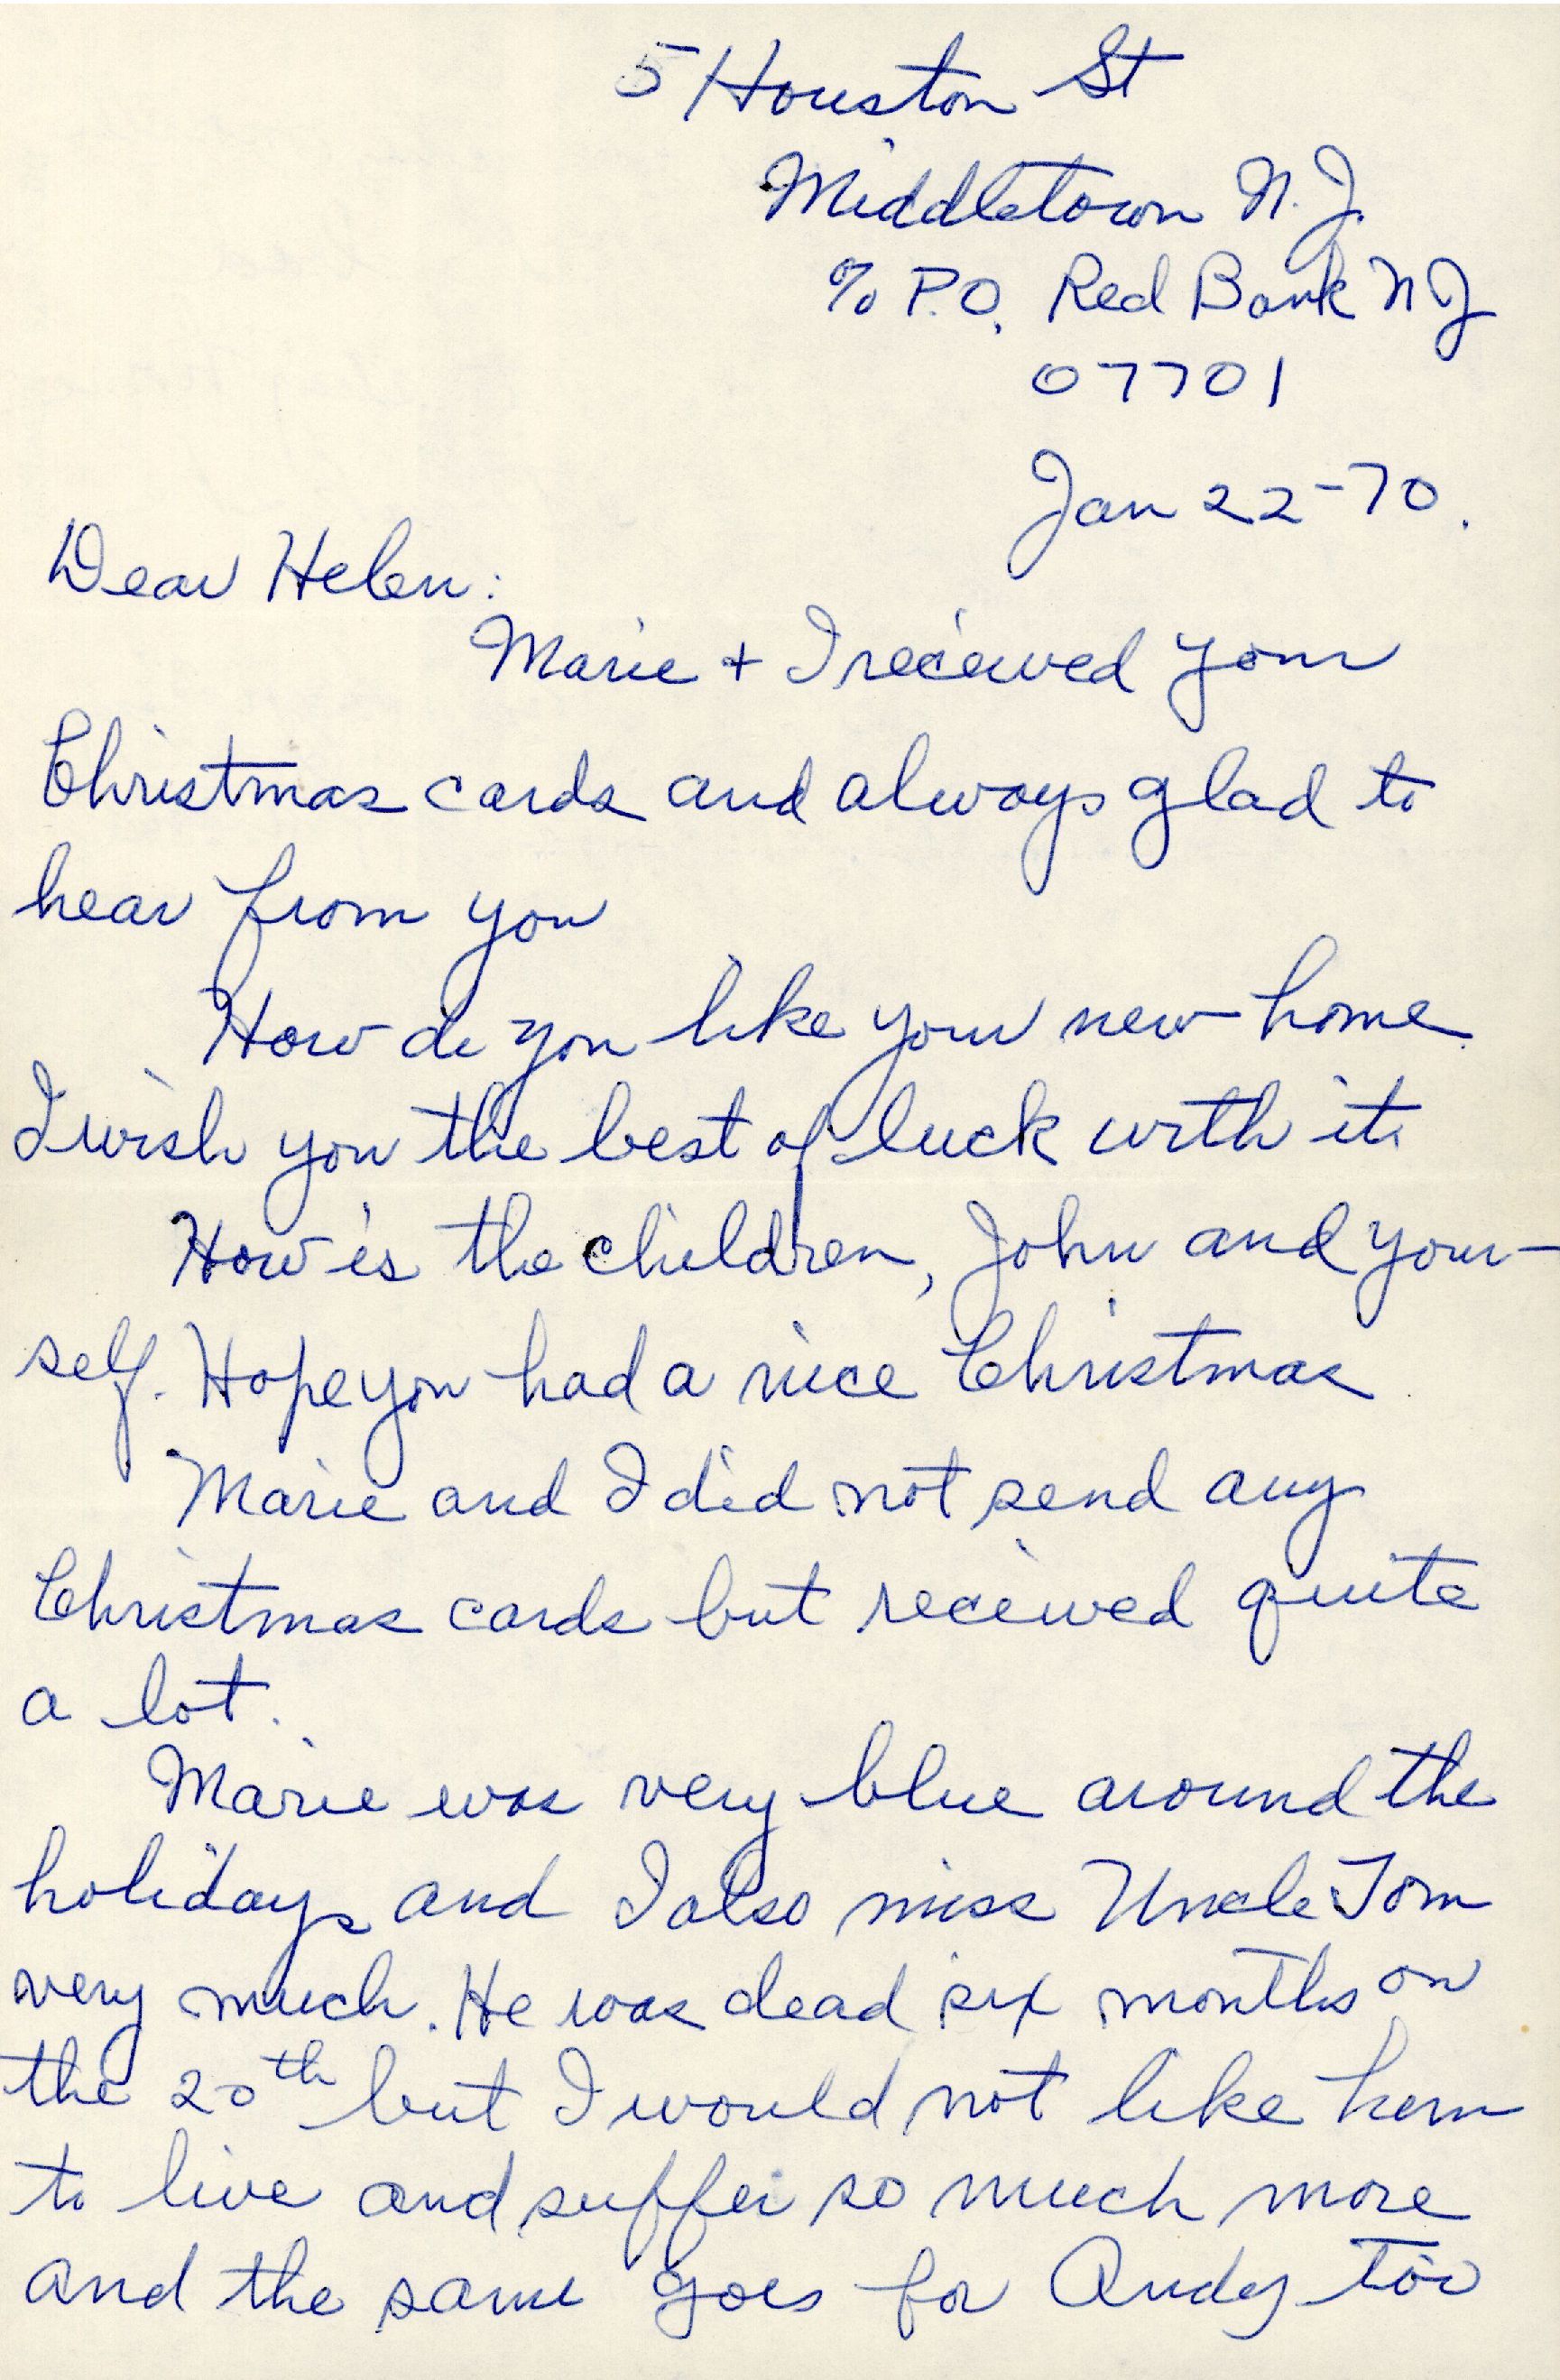 5 Houston St
Middletown N.J.
% P.O. Red Bank NJ
07701
Jan 22-70.
Dear Helen:
Marie + I received your
Christmas cards and always glad to
hear from you
How do you like your new home.
I wish you the best of luck with it.
How is the children, John and your-
self. Hope you had a nice Christmas.
Marie and I did not send any
Christmas cards but received quite
a lot.
Marie was very blue around the
holidays and I also miss Uncle Tom
very much. He was dead six months on
the 20th but I would not like him
to live and suffer so much more
and the same goes for Andy too